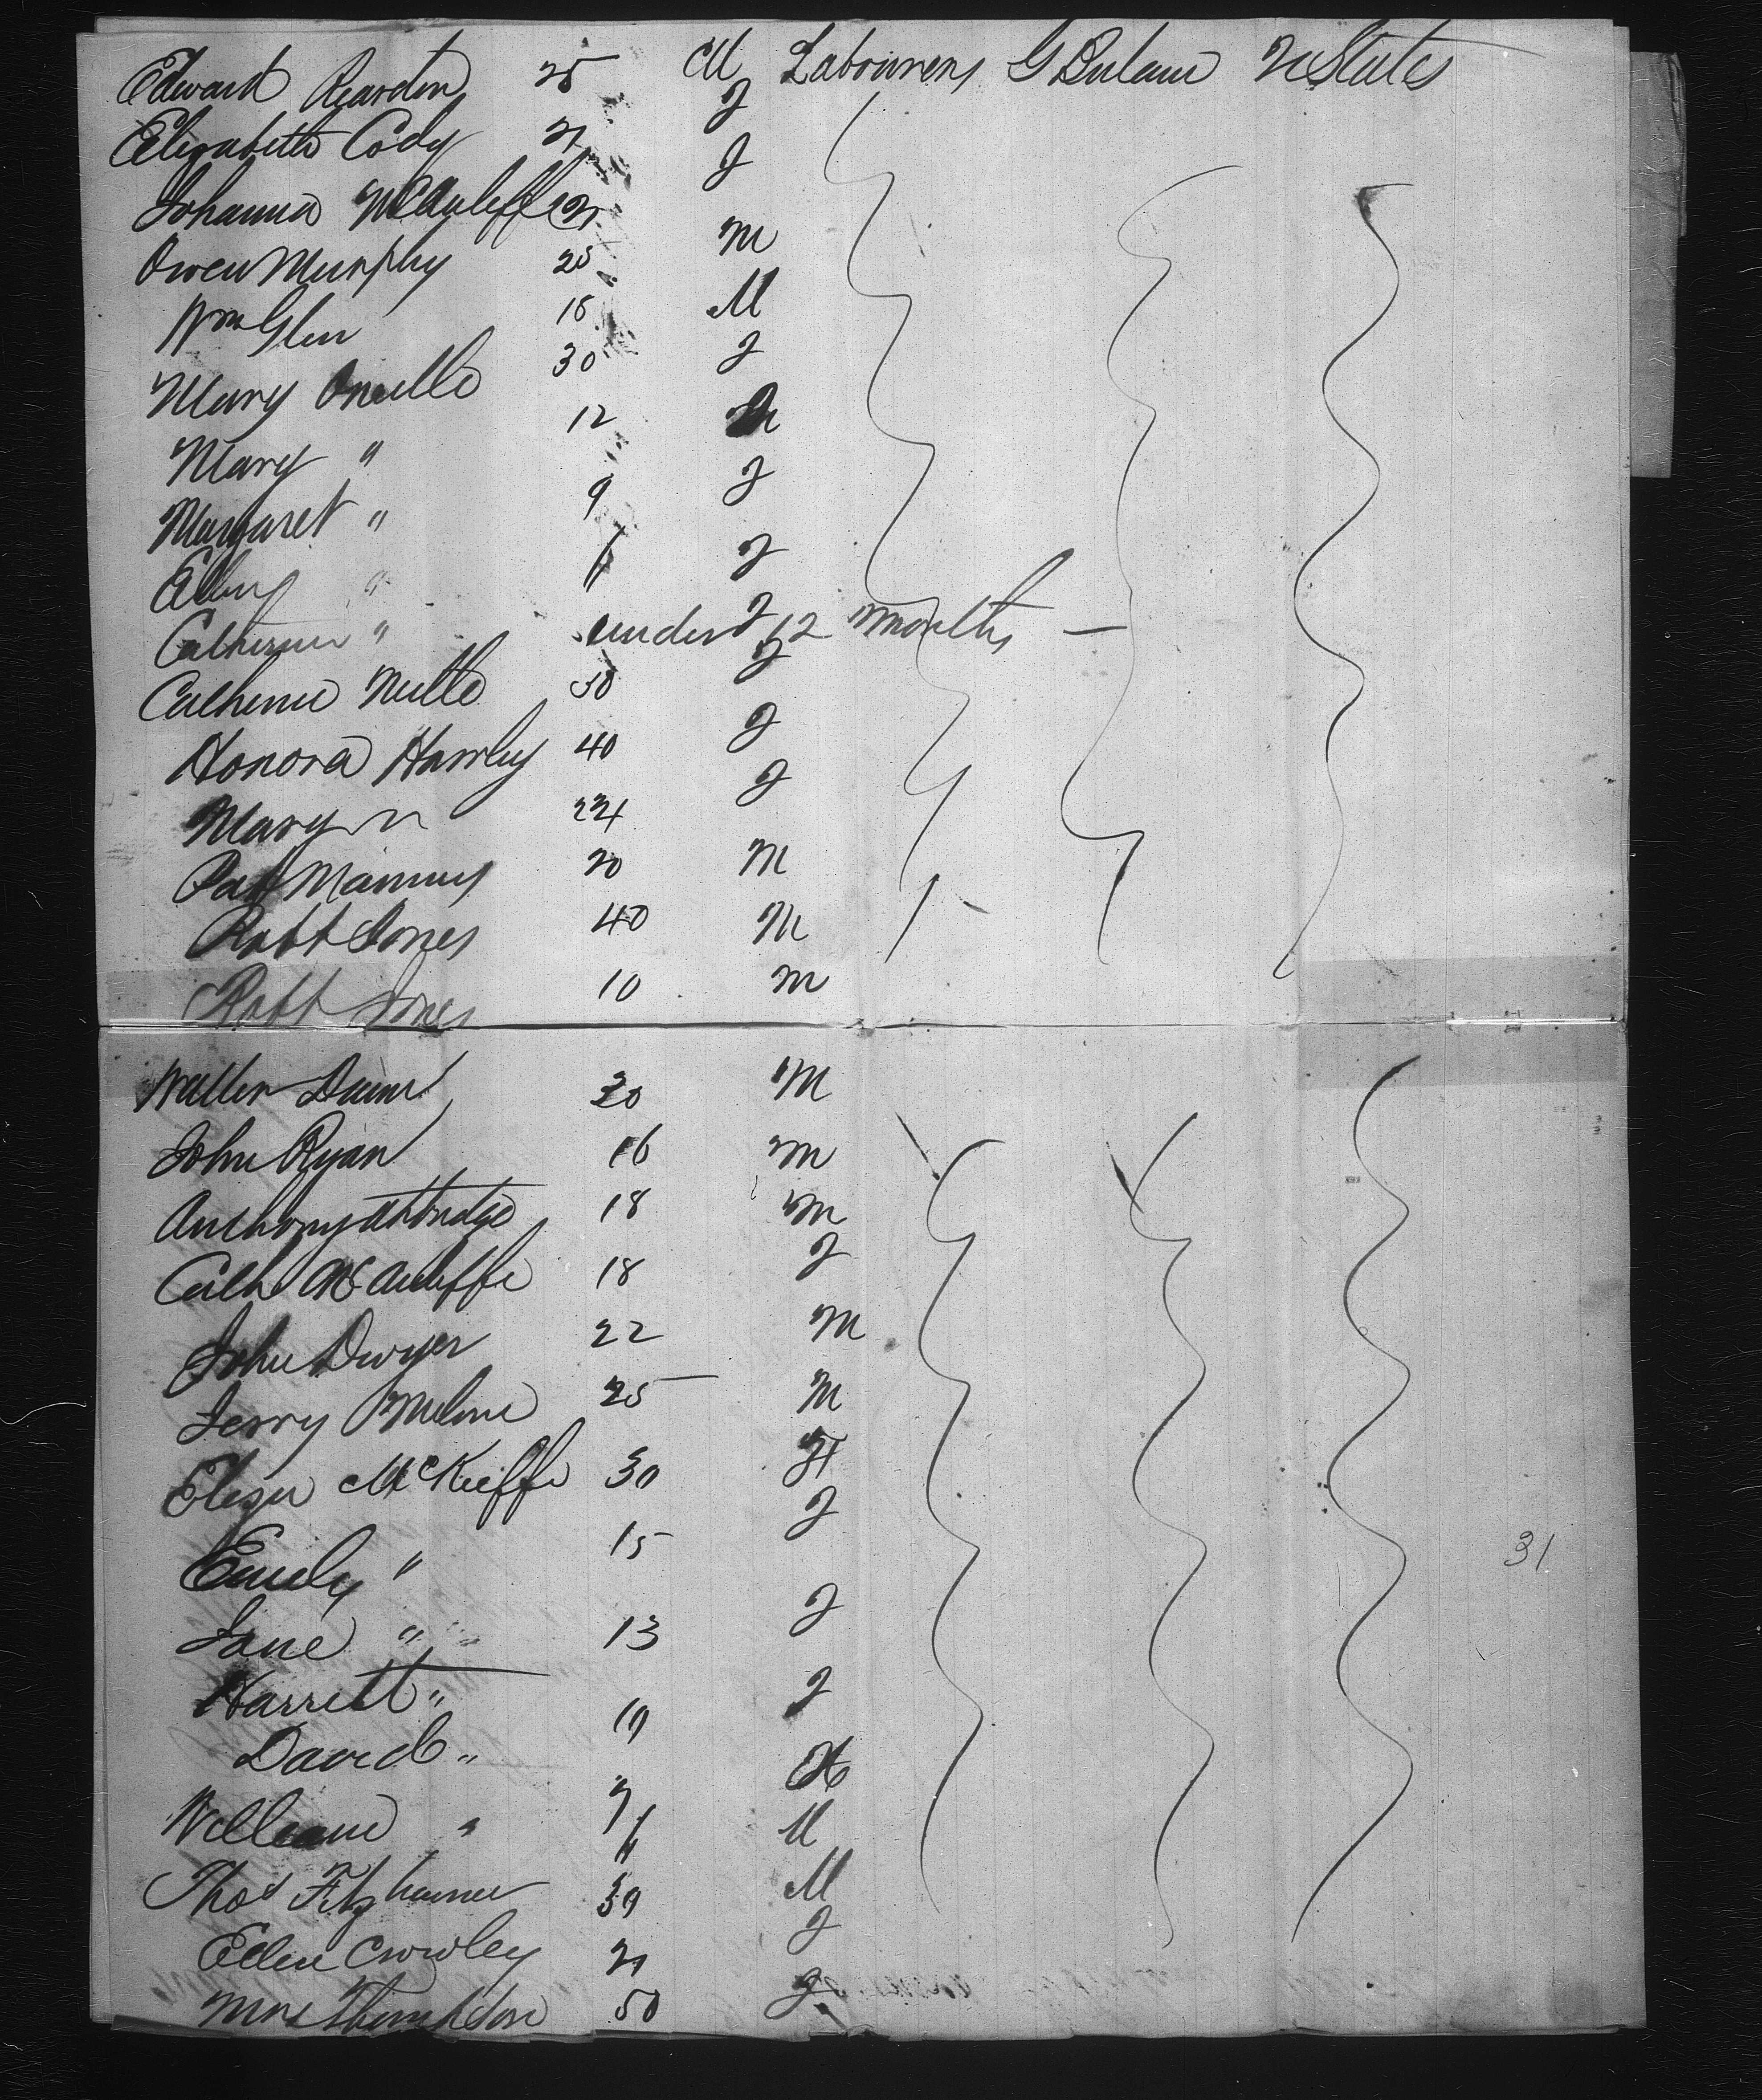 Edward Reardon 25 M Labourers G Britain U States
Elizabeth Cody 21 F
Johanna McAuliffe 21 F
Owen Murphy 25 M
Wm Glen 18 M
Mary Oneille 30 F
Mary " 12
Margaret " 9 F
Ellen " F
Catherine " under 12 months — F
Catherine Neille 30 F
Honora Hawley 40 F
Mary " 24 F
Patt Manning 20 M
Robt Jones 40 M
Robt Jones 10 M
Walter 30 M
John Ryan 16 M
Anthony Attridge 18 M
Cath McAuliffe 18 F
John Dwyer 22 M
Jerry Malone 25 M
Eliza McKieffe 30 F
Emily " 15 F
Jane " 13 F
Harrett " F
David "
William " M
Thos 30 M
Ellen Crowley 21 F
Mrs Thompson 50 F
31